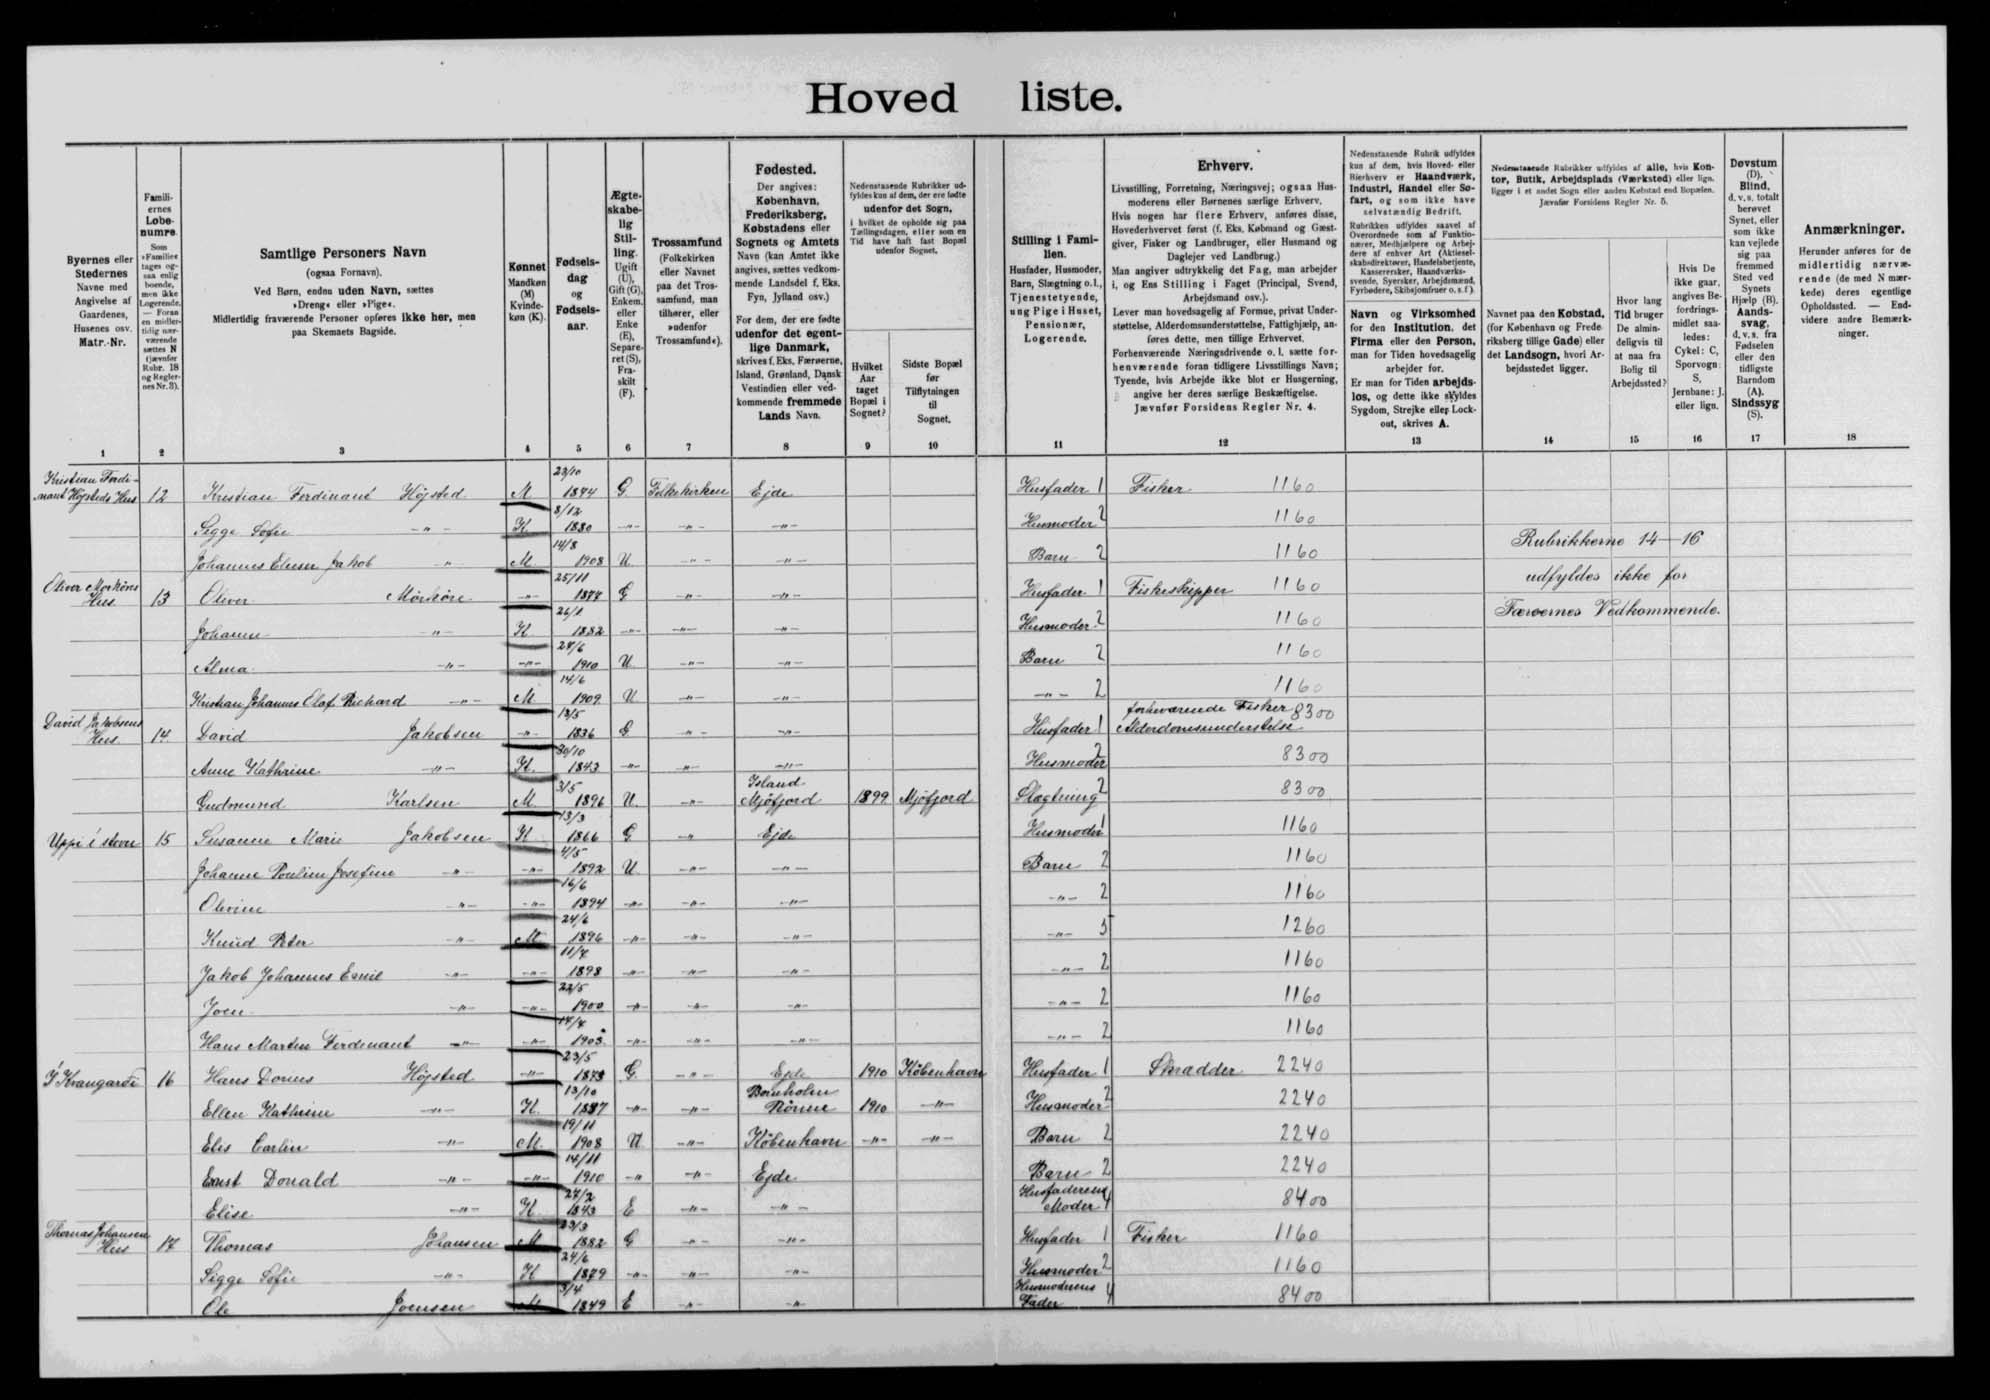 Hoved liste.
Byernes eller Stedernes Navne med Angivelse af Gaardenes, Husenes osv. Matr.-Nr.
Familiernes Løbenumre.
Som »Familie« tages ogsaa enlig boende, men ikke Logerende. — Foran en midlertidig nærværende sættes N (jævnfør Rubr. 18 og Reglernes Nr. 3).
Samtlige Personers Navn
(ogsaa Fornavn).
Ved Børn, endnu uden Navn, sættes »Dreng« eller »Pige«.
Midlertidig fraværende Personer opføres ikke her, men paa Skemaets Bagside.
Kønnet Mandkøn (M) Kvindekøn (K).
Fødselsdag og Fødselsaar.
Ægteskabelig Stilling. Ugift (U), Gift (G), Enkem. eller Enke (E), Separeret (S), Fraskilt (F).
Trossamfund (Folkekirken eller Navnet paa det Trossamfund, man tilhører, eller »udenfor Trossamfund«).
Fødested.
Der angives: København, Frederiksberg, Købstadens eller Sognets og Amtets Navn (kan Amtet ikke angives, sættes vedkommende Landsdel f. Eks. Fyn, Jylland osv.)
For dem, der ere fødte udenfor det egentlige Danmark, skrives f. Eks. Færøerne, Island, Grønland, Dansk Vestindien eller vedkommende fremmede Lands Navn.
Nedenstaaende Rubrikker udfyldes kun af dem, der ere fødte udenfor det Sogn, i hvilket de opholde sig paa Tællingsdagen, eller som en Tid have haft fast Bopæl udenfor Sognet.
Hvilket Aar taget Bopæl i Sognet?
Sidste Bopæl før Tilflytningen til Sognet.
Stilling i Familien.
Husfader, Husmoder, Barn, Slægtning o. l., Tjenestetyende, ung Pige i Huset, Pensionær, Logerende.
Erhverv.
Livsstilling, Forretning, Næringsvej; ogsaa Husmoderens eller Børnenes særlige Erhverv.
Hvis nogen har flere Erhverv, anføres disse, Hovederhvervet først (f. Eks. Købmand og Gæstgiver, Fisker og Landbruger, eller Husmand og Daglejer ved Landbrug.)
Man angiver udtrykkelig det Fag, man arbejder i, og Ens Stilling i Faget (Principal, Svend, Arbejdsmand osv.).
Lever man hovedsagelig af Formue, privat Understøttelse, Alderdomsunderstøttelse, Fattighjælp, anføres dette, men tillige Erhvervet.
Forhenværende Næringsdrivende o. l. sætte forhenværende foran tidligere Livsstillings Navn;
Tyende, hvis Arbejde ikke blot er Husgerning, angive her deres særlige Beskæftigelse.
Jævnfør Forsidens Regler Nr. 4.
Nedenstaaende Rubrik udfyldes kun af dem, hvis Hoved- eller Bierhverv er Haandværk, Industri, Handel eller Søfart, og som ikke have selvstændig Bedrift.
Rubrikken udfyldes saavel af Overordnede som af Funktionærer, Medhjælpere og Arbejdere af enhver Art (Aktieselskabsdirektører, Handelsbetjente, Kasserersker, Haandværkssvende, Syersker, Arbejdsmænd, Fyrbødere, Skibsjomfruer o. s. f.).
Navn og Virksomhed for den Institution, det Firma eller den Person, man for Tiden hovedsagelig arbejder for.
Er man for Tiden arbejdsløs, og dette ikke skyldes Sygdom, Strejke eller Lockout, skrives A.
Nedenstaaende Rubrikker udfyldes af alle, hvis Kontor, Butik, Arbejdsplads (Værksted) eller lign. ligger i et andet Sogn eller anden Købstad end Bopælen.
Jævnfør Forsidens Regler Nr. 5.
Navnet paa den Købstad, (for København og Frederiksberg tillige Gade) eller det Landsogn, hvori Arbejdsstedet ligger.
Hvor lang Tid bruger De almindeligvis til at naa fra Bolig til Arbejdssted?
Hvis De ikke gaar, angives Befordringsmidlet saaledes: Cykel: C, Sporvogn: S, Jernbane: J. eller lign.
Døvstum (D). Blind, d. v. s. totalt berøvet Synet, eller som ikke kan vejlede sig paa fremmed Sted ved Synets Hjælp (B). Aandssvag, d. v. s. fra Fødselen eller den tidligste Barndom (A). Sindssyg (S).
Anmærkninger.
Herunder anføres for de midlertidig nærværende (de med N mærkede) deres egentlige Opholdssted. — Endvidere andre Bemærkninger.
1 2 3 4 5 6 7 8 9 10 11 12 13 14 15 16 17 18
Kristian Ferdinant Højsteds Hus 12 Kristian Ferdinant Højsted M 23/10 1874 G Folkekirken Ejde Husfader 1 Fisker 1160
Sigge Sofie -"- K 8/12 1880 -"- -"- -"- Husmoder 2 1160
Johannes Elieser Jakob " M 14/8 1908 U -"- -"- Barn 2 1160
Rubrikkerne 14-16
udfyldes ikke for
Færøernes Vedkommende.
Oliver Mørkøres Hus 13 Oliver Mørkøre -"- 25/11 1874 G -"- -"- Husfader 1 Fiskeskipper 1160
Johanne -"- K 26/1 1882 -"- -"- -"- Husmoder 2 1160
Alma -"- -"- 24/6 1910 U -"- -"- Barn 2 1160
Kristian Johannes Olaf Richard -"- M 14/6 1909 U -"- -"- -"- 2 1160
David Jakobsens Hus 14 David Jakobsen -"- 13/5 1836 G -"- -"- Husfader 1 forhenværende Fisker Alderdomsunderstøttelse 8300
Anne Kathrine -"- K 30/10 1843 -"- -"- -"- Husmoder 2 8300
Gudmund Karlsen M 3/5 1896 U -"- Island Mjófjord 1899 Mjófjord Slægtning 2 8300
Uppi í stovu 15 Susanne Marie Jakobsen K 13/3 1866 G " Ejde Husmoder 1 1160
Johanne Pouline Josefine -"- -"- 4/5 1892 U -"- -"- Barn 2 1160
Olivine -"- -"- 16/6 1894 -"- -"- -"- -"- 2 1160
Knud Peter -"- M 24/6 1896 -"- -"- -"- -"- 3 1260
Jakob Johannes Emil -"- -"- 11/4 1898 -"- -"- -"- -"- 2 1160
Joen -"- -"- 22/5 1900 -"- -"- -"- -"- 2 1160
Hans Martin Ferdinant -"- -"- 14/4 1903 -"- -"- -"- -"- 2 1160
Í Kvangarði 16 Hans Dorius Højsted -"- 23/5 1873 G -"- Ejde 1910 København Husfader 1 Skrædder 2240
Ellen Kathrine -"- K 13/10 1887 -"- -"- Bornholm Rønne 1910 -"- Husmoder 2 2240
Elis Carlin -"- M 19/11 1908 U -"- København -"- -"- Barn 2 2240
Ernst Donald -"- -"- 14/11 1910 -"- -"- Ejde Barn 2 2240
Elise -"- K 27/2 1843 E -"- -"- Husfaderens Moder 4 8400
Thomas Johansens Hus 17 Thomas Johansen M 23/3 1882 G -"- -"- Husfader 1 Fisker 1160
Sigge Sofie -"- K 24/6 1879 -"- -"- -"- Husmoder 2 1160
Ole Joensen M 3/4 1849 E -"- -"- Husmoderens Fader 4 8400